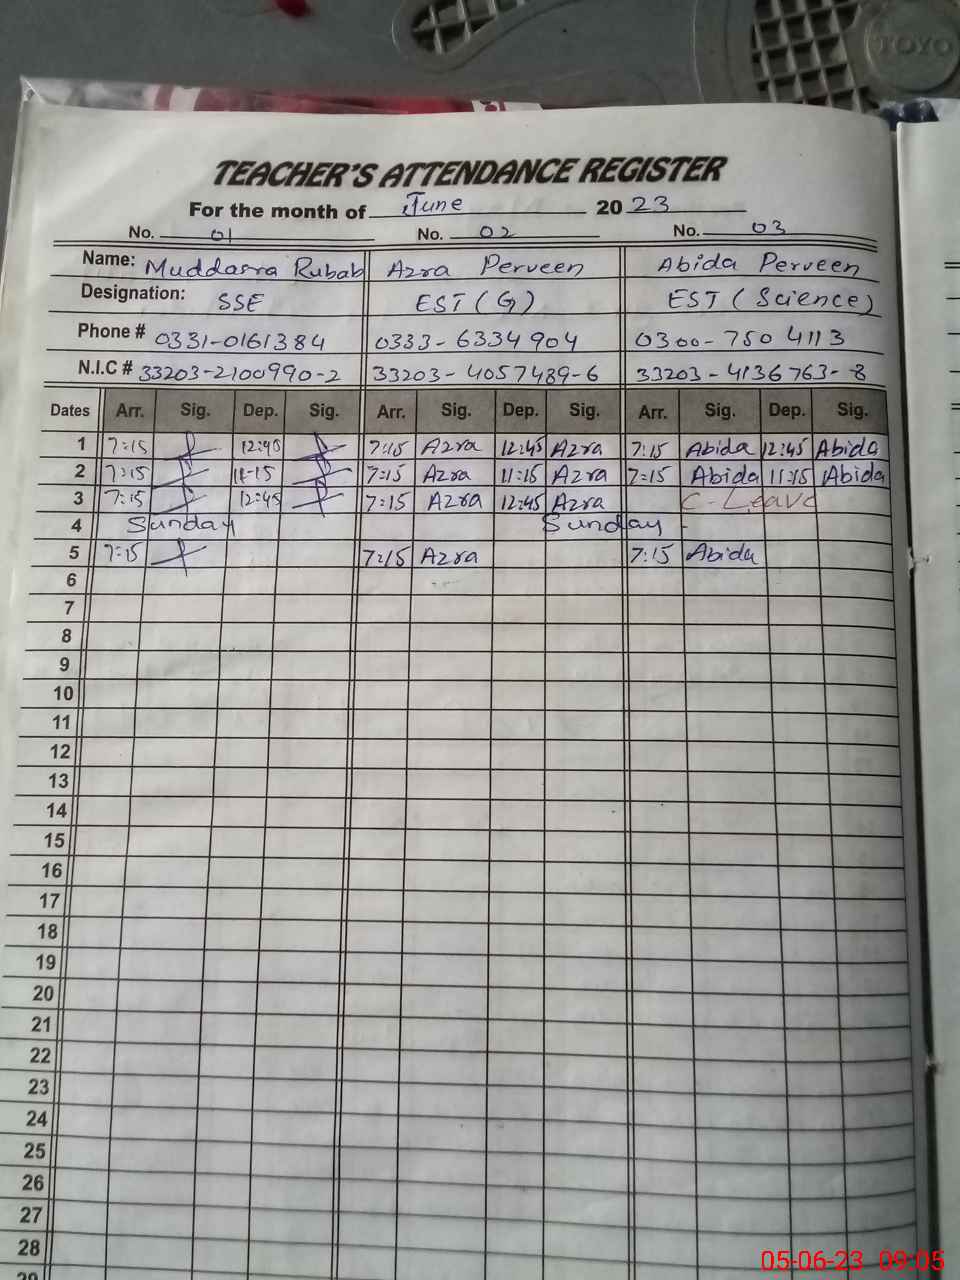 TOYO
TEACHER'S ATTENDANCE REGISTER
For the month of June 2023
No. 01 No. 02 No. 03
Name: Muddasra Rubab Azra Perveen Abida Perveen
Designation: SSE EST (G) EST (Science)
Phone # 0331-0161384 0333-6334904 0300-750 4113
N.I.C # 33203-2100990-2 33203-4057489-6 33203-4136763-8
Dates Arr. Sig. Dep. Sig. Arr. Sig. Dep. Sig. Arr. Sig. Dep. Sig.
1 7:15 12:45 7:15 Azra 12:45 Azra 7:15 Abida 12:45 Abida
2 7:15 11-15 7:15 Azra 11:15 Azra 7:15 Abida 11:15 Abida
3 7:15 12:45 7:15 Azra 12:45 Azra C-Leave
4 Sunday Sunday -
5 7:15 7:15 Azra 7:15 Abida
6
7
8
9
10
11
12
13
14
15
16
17
18
19
20
21
22
23
24
25
26
27
28
29
05-06-23 09:05